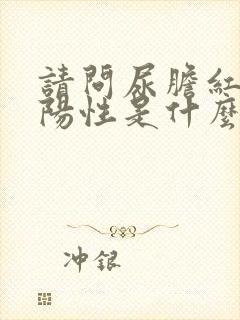 請問尿膽紅
陽性是什麼
冲銀